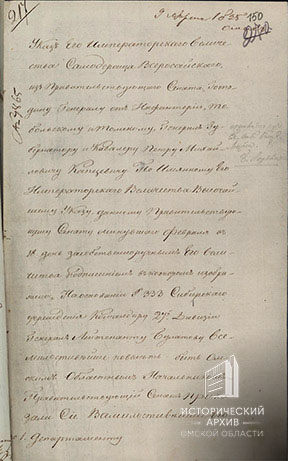 217
9 апреля 1825 150
№ 3865
Указ Его Императорского Величе
ства Самодержца Всероссийского,
из Правительствующего Сената, Госпо
дину Генералу от Инфантерии, То
больскому и Томскому Генерал Гу
бернатору и Кавалеру Петру Михай
ловичу Капцевичу. По Имянному Его
Императорского Величества Высочай
шему Указу, данному Правительствую
щему Сенату минувшего февраля в
18 день за собственноручным Его Вели
чества подписанием в котором изобра
жено: На основании § 333 Сибирского
учреждения Командиру 27й Дивизии
Генерал Лейтенанту Булатову Все
милостивейше повелеваю быть Ом
ским Областным Начальником
Правительствующий Сенат
Департаменту
ИСТОРИЧЕСКИЙ
АРХИВ
ОМСКОЙ ОБЛАСТИ